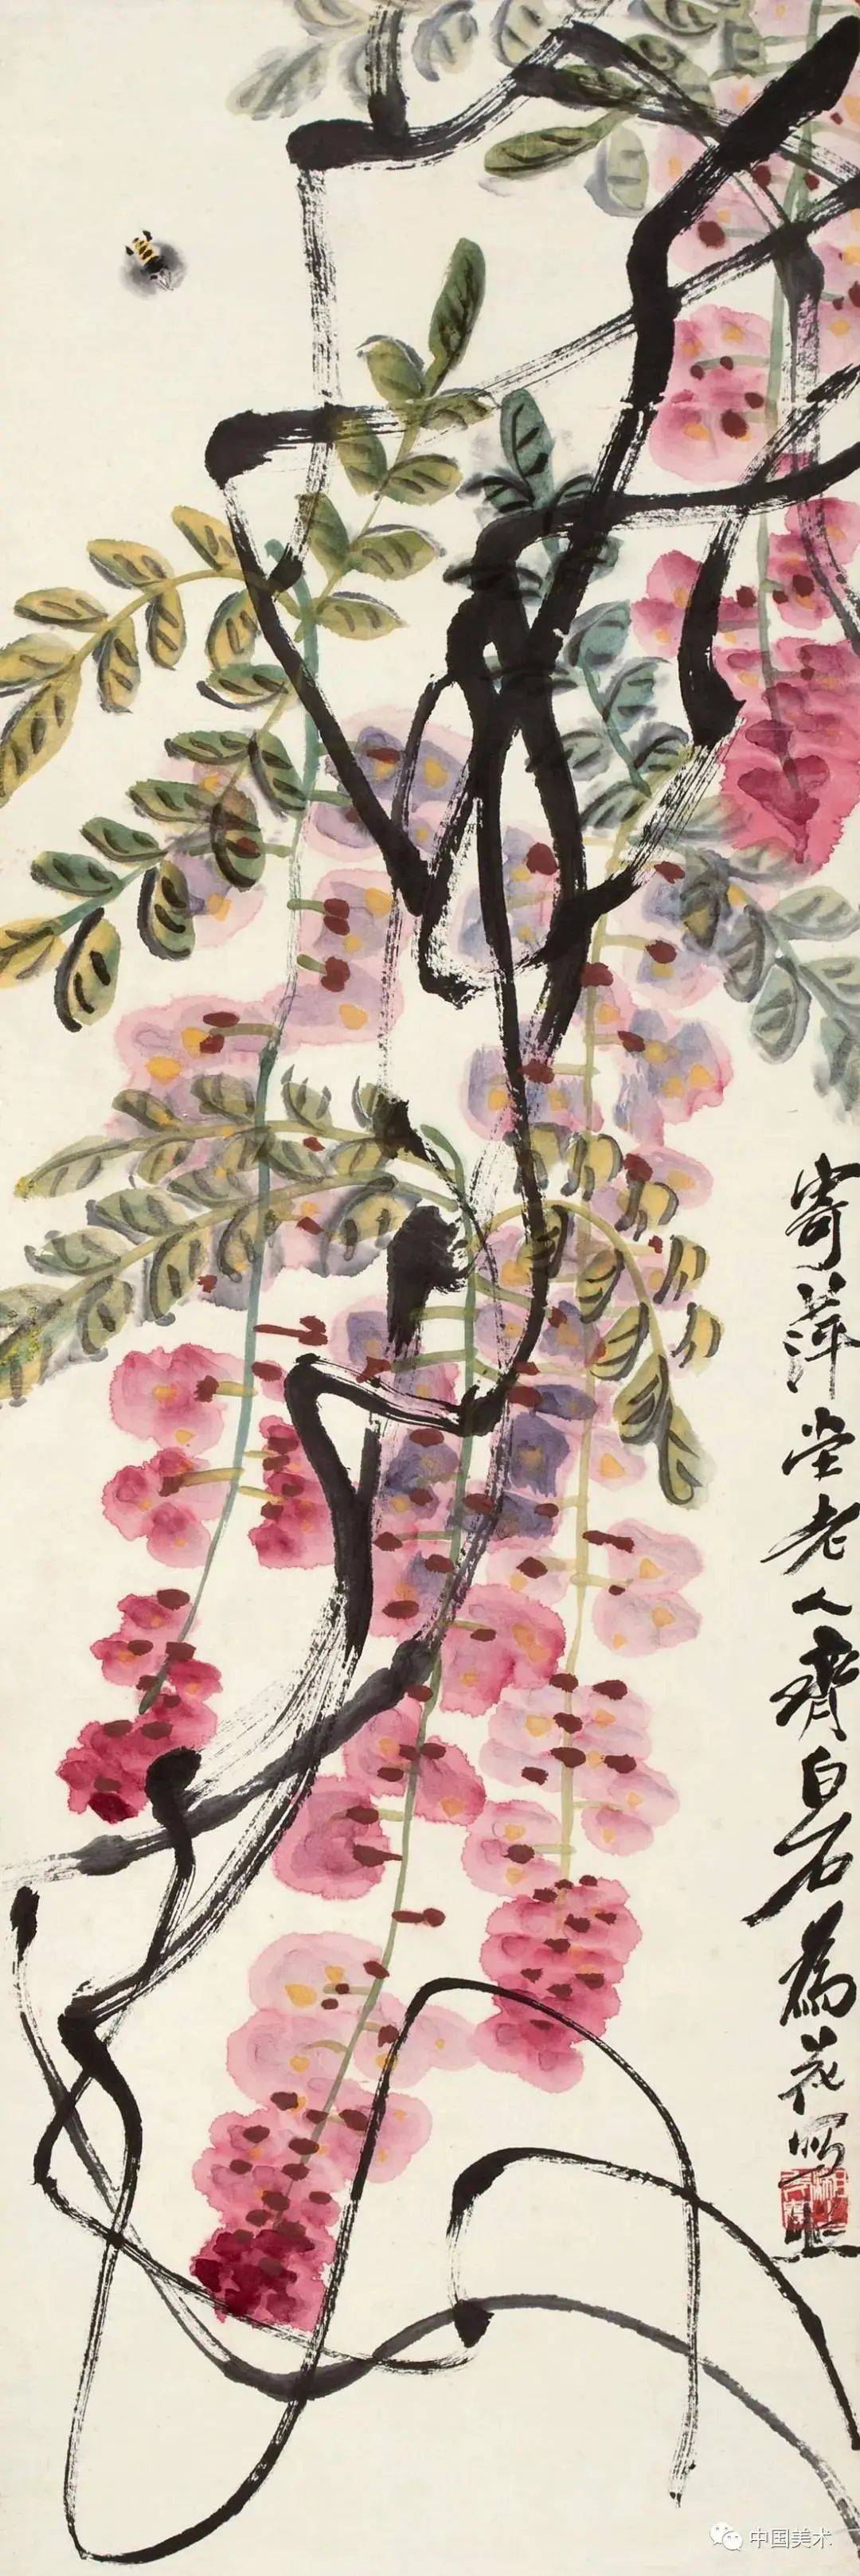 寄萍堂老人齊白石為花寫照
中国美术